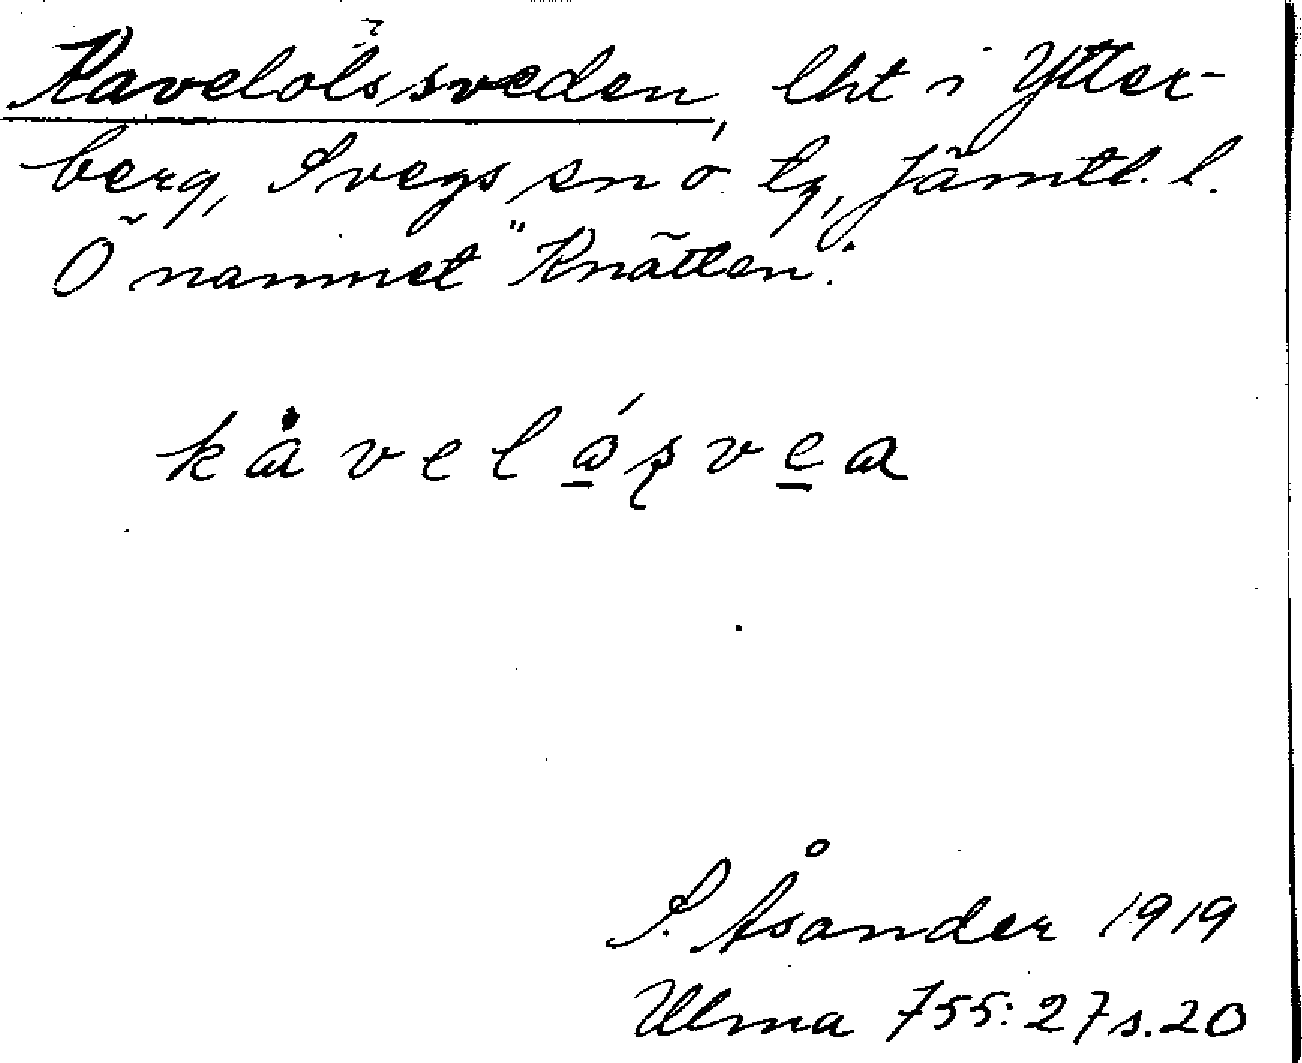 Kavelölssveden, lht i Ytter-
berg, Svegs sn o tg, Jämtl. l.
Önamnet "Knätten".
kåvelåsvea
S. Åsander 1919
Ulma 755:27 s. 20